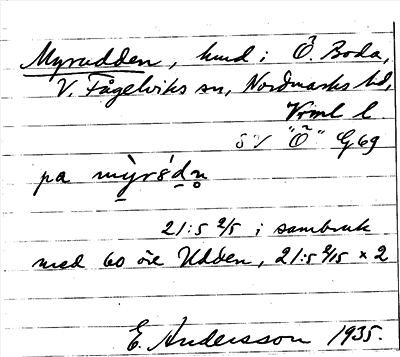 Myrudden, hmd i Ö. Boda,
V. Fågelviks sn, Nordmarks hd,
Vrml l.
SV "Ö" G69
pa myršdn
21:5 2/5 i sambruk
med 60 öre Udden, 21:5 2/15 x 2
E. Andersson 1935.